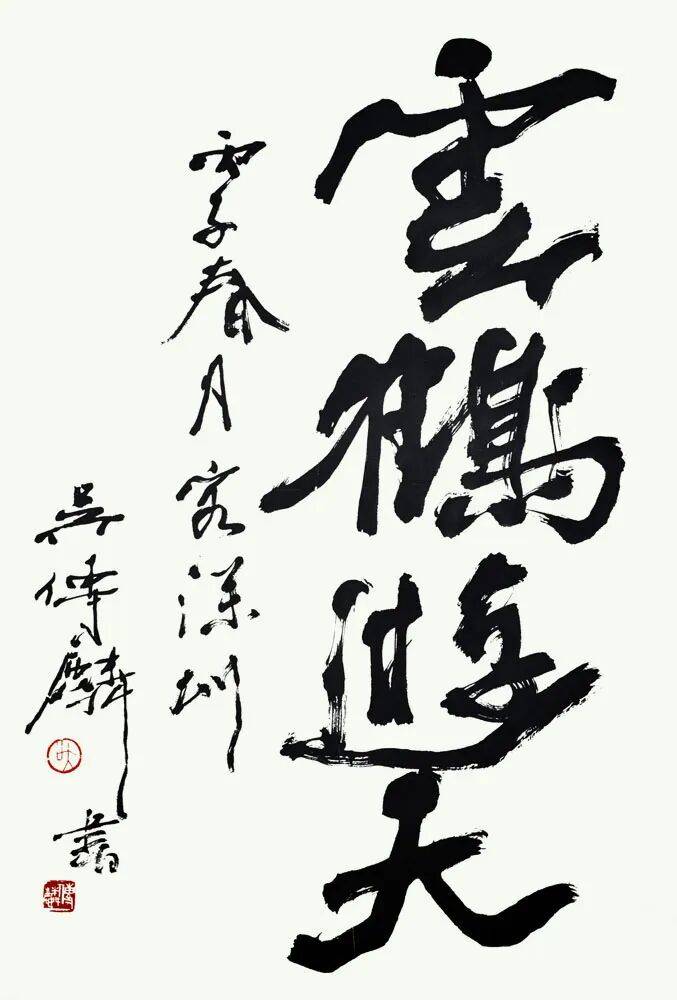 雲鶴遊天
丙子春月客深圳
吳傳麟書